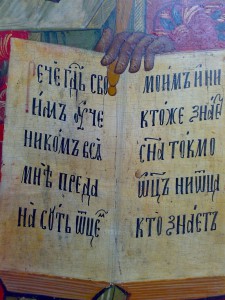 Рече гдь сво
имъ ѹче
никомъ всѧ
мнѣ преда
на суть ѿцем
моимъ и ни
ктоже знае
сна токмо
ѿцъ ни ѿца
кто знаетъ